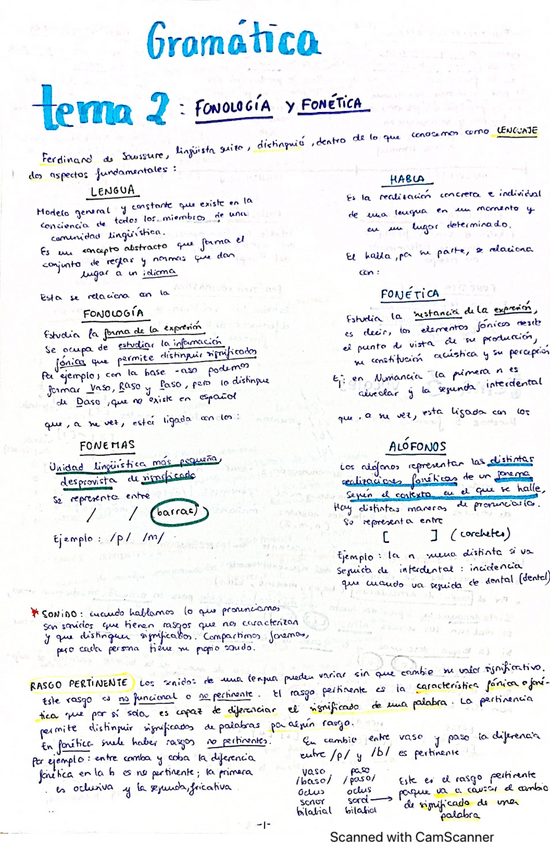 Gramática
tema 2: FONOLOGÍA Y FONÉTICA
Ferdinand de Saussure, lingüista suizo, distinguió, dentro de lo que conocemos como LENGUAJE
dos aspectos fundamentales:
LENGUA
Modelo general y constante que existe en la
conciencia de todos los miembros de una
comunidad lingüística.
Es un concepto abstracto que forma el
conjunto de reglas y normas que dan
lugar a un idioma
Esta se relaciona con la
FONOLOGÍA
Estudia la forma de la expresión
Se ocupa de estudiar la información
fónica que permite distinguir significados
Por ejemplo: con la base -aso podemos
formar Vaso, Raso y Paso, pero lo distingue
de Daso, que no existe en español
que, a su vez, está ligada con los:
FONEMAS
Unidad lingüística más pequeña,
desprovista de significado
Se representa entre
/ / (barras)
Ejemplo: /p/ /m/
HABLA
Es la realización concreta e individual
de una lengua en un momento y
en un lugar determinado.
El habla, por su parte, se relaciona
con:
FONÉTICA
Estudia la sustancia de la expresión,
es decir, los elementos fónicos desde
el punto de vista de su producción,
su constitución acústica y su percepción
Ej: en Numancia la primera n es
alveolar y la segunda interdental
que, a su vez, esta ligada con los
ALÓFONOS
Los alófonos representan las distintas
realizaciones fonéticas de un fonema
según el contexto en el que se halle.
Hay distintas maneras de pronunciarlo.
Se representa entre
[ ] (corchetes)
Ejemplo: la n suena distinta si va
seguida de interdental: incidencia
que cuando va seguida de dental (dental)
* SONIDO: cuando hablamos lo que pronunciamos
son sonidos que tienen rasgos que nos caracterizan
y que distinguen significados. Compartimos fonemas,
pero cada persona tiene su propio sonido.
RASGO PERTINENTE Los sonidos de una lengua pueden variar sin que cambie su valor significativo.
Este rasgo es no funcional o no pertinente. El rasgo pertinente es la característica fónica o foné-
tica que por si sola, es capaz de diferenciar el significado de una palabra. La pertinencia
permite distinguir significados de palabras por algún rasgo.
En fonética suele haber rasgos no pertinentes.
Por ejemplo: entre comba y coba la diferencia
fonética en la b es no pertinente; la primera
es oclusiva y la segunda fricativa.
En cambio entre vaso y paso la diferencia
entre /p/ y /b/ es pertinente
vaso paso
/baso/ /paso/
oclus oclus
sonor sord →
bilabial bilabial
Este es el rasgo pertinente
porque va a causar el cambio
de significado de una
palabra
-1-
Scanned with CamScanner